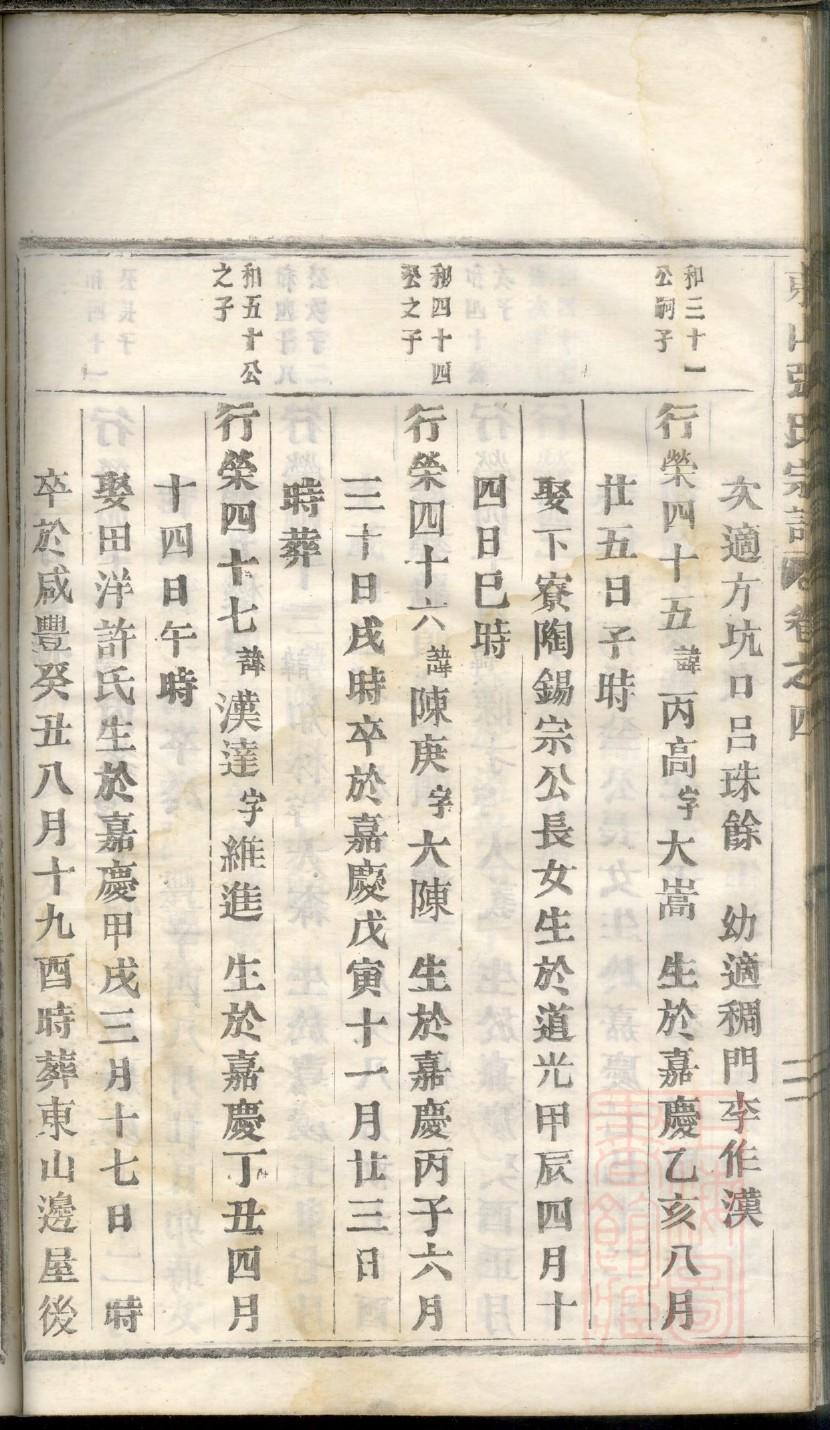 東山張氏宗譜 卷之四
次適方坑口呂珠餘 幼適稠門李作漢
和三十一公嗣子
行榮四十五諱丙高字大嵩 生於嘉慶乙亥八月
廿五日子時
娶下寮陶錫宗公長女生於道光甲辰四月十
四日巳時
和四十四公之子
行榮四十六諱陳庚字大陳 生於嘉慶丙子六月
三十日戌時卒於嘉慶戊寅十一月廿三日
時葬
和五十公之子
行榮四十七諱漢達字維進 生於嘉慶丁丑四月
十四日午時
娶田洋許氏生於嘉慶甲戌三月十七日 時
卒於咸豐癸丑八月十九酉時葬東山邊屋後